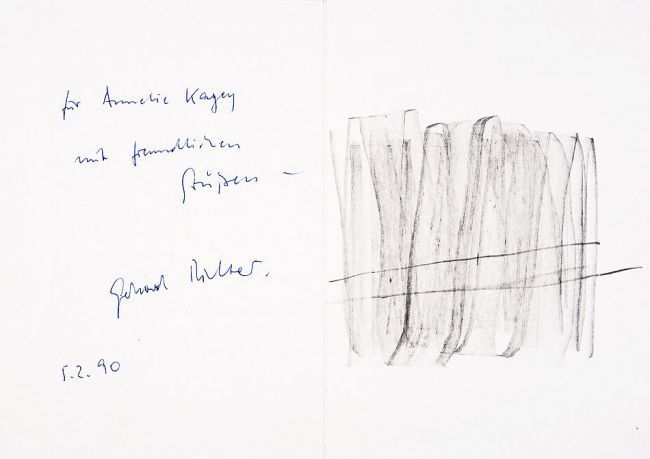 für Annelie Kagey
mit freundlichen
Grüßen –
Gerhard Richter.
5.2.90